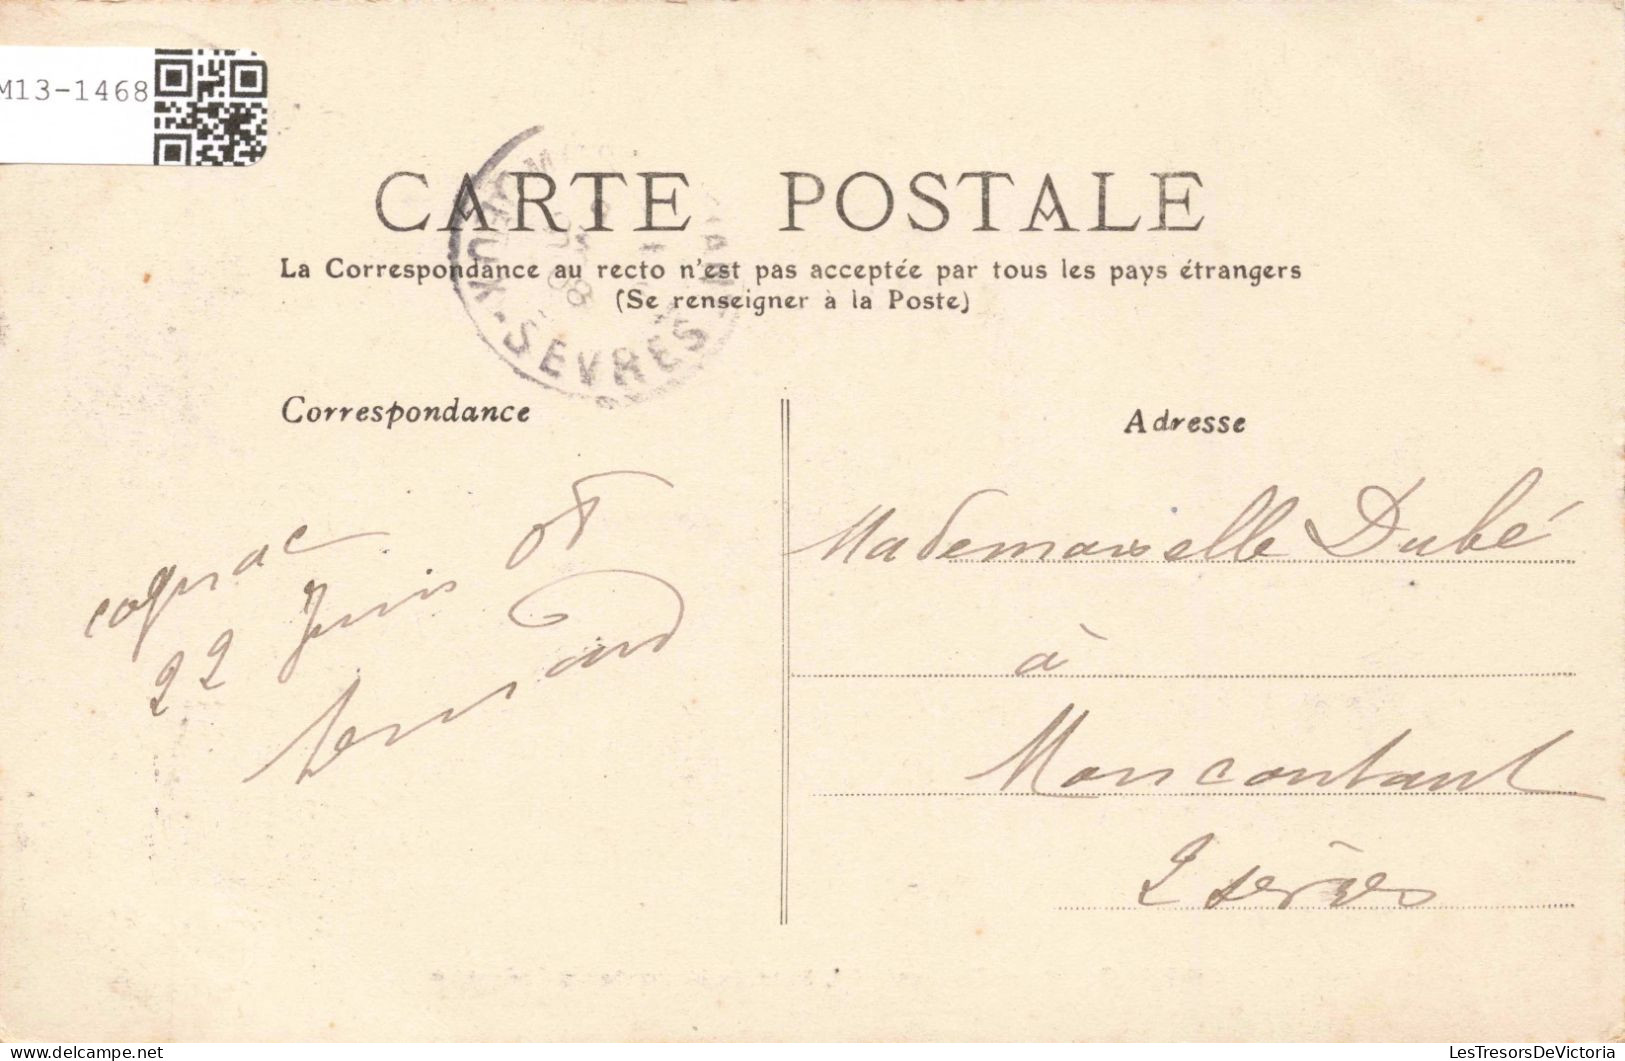 M13-1468
CARTE POSTALE
La Correspondance au recto n'est pas acceptée par tous les pays étrangers
(Se renseigner à la Poste)
DEUX-SEVRES
Correspondance
Adresse
cognac
22 Juin 08
Mademoiselle Dubé
à
Moncoutant
2 sèvres
LesTresorsDeVictoria